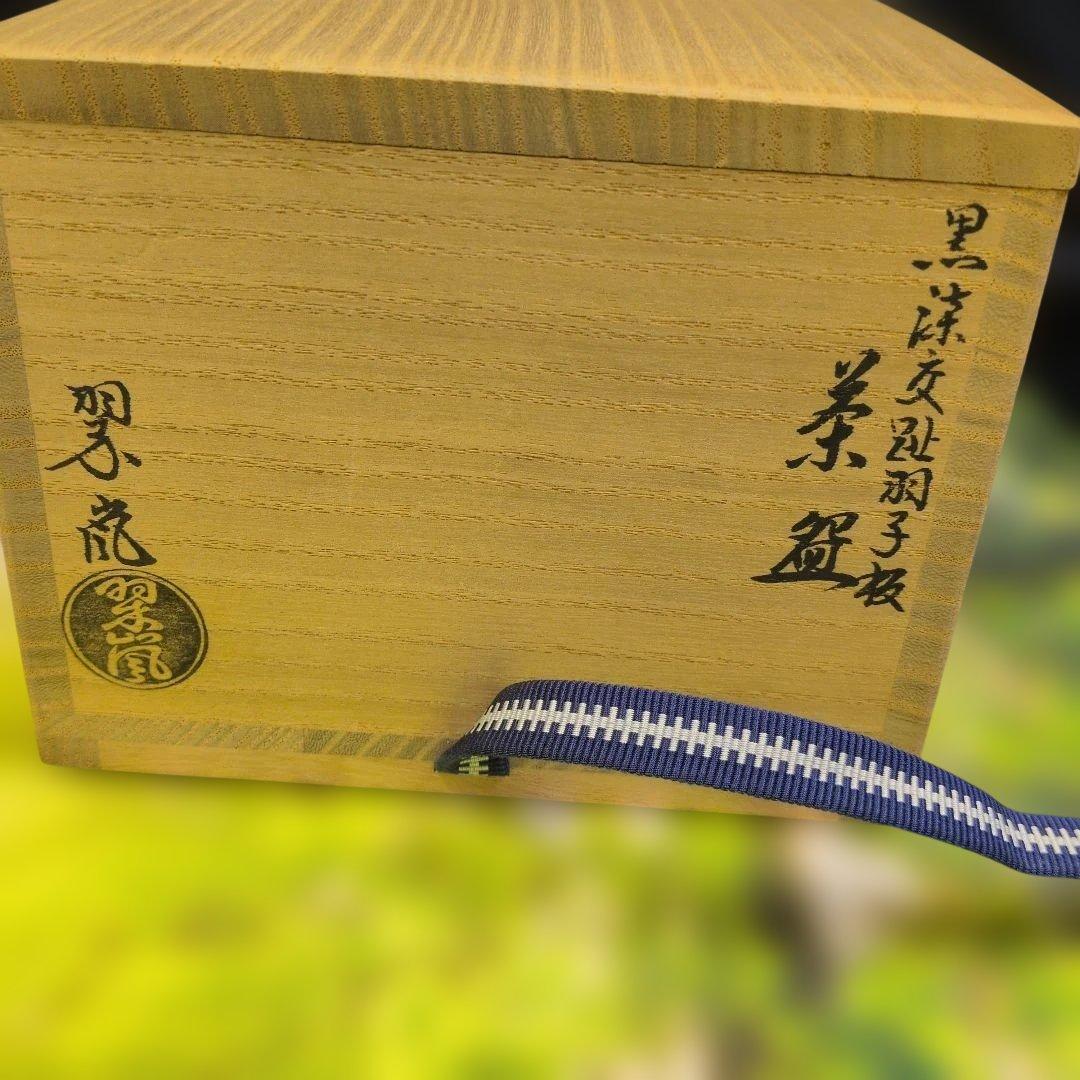 黒濃交趾羽子板
茶盌
翠嵐
翠嵐